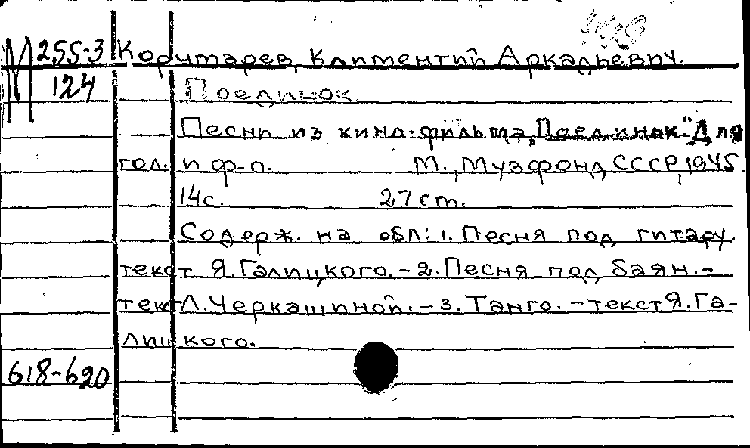 М 255-3 Корчмарев, Климентий Аркадьевич.
124 Поединок
Песни из кино-фильма „Поединок". Для
гол. и ф-п. М., Музфонд СССР, 1945.
14с. 27 cm.
Содерж. на обл: 1. Песня под гитару.
текст Я. Галицкого. - 2. Песня под баян. -
текст Л. Черкашиной. - 3. Танго. - текст Я. Га-
лицкого.
618-620